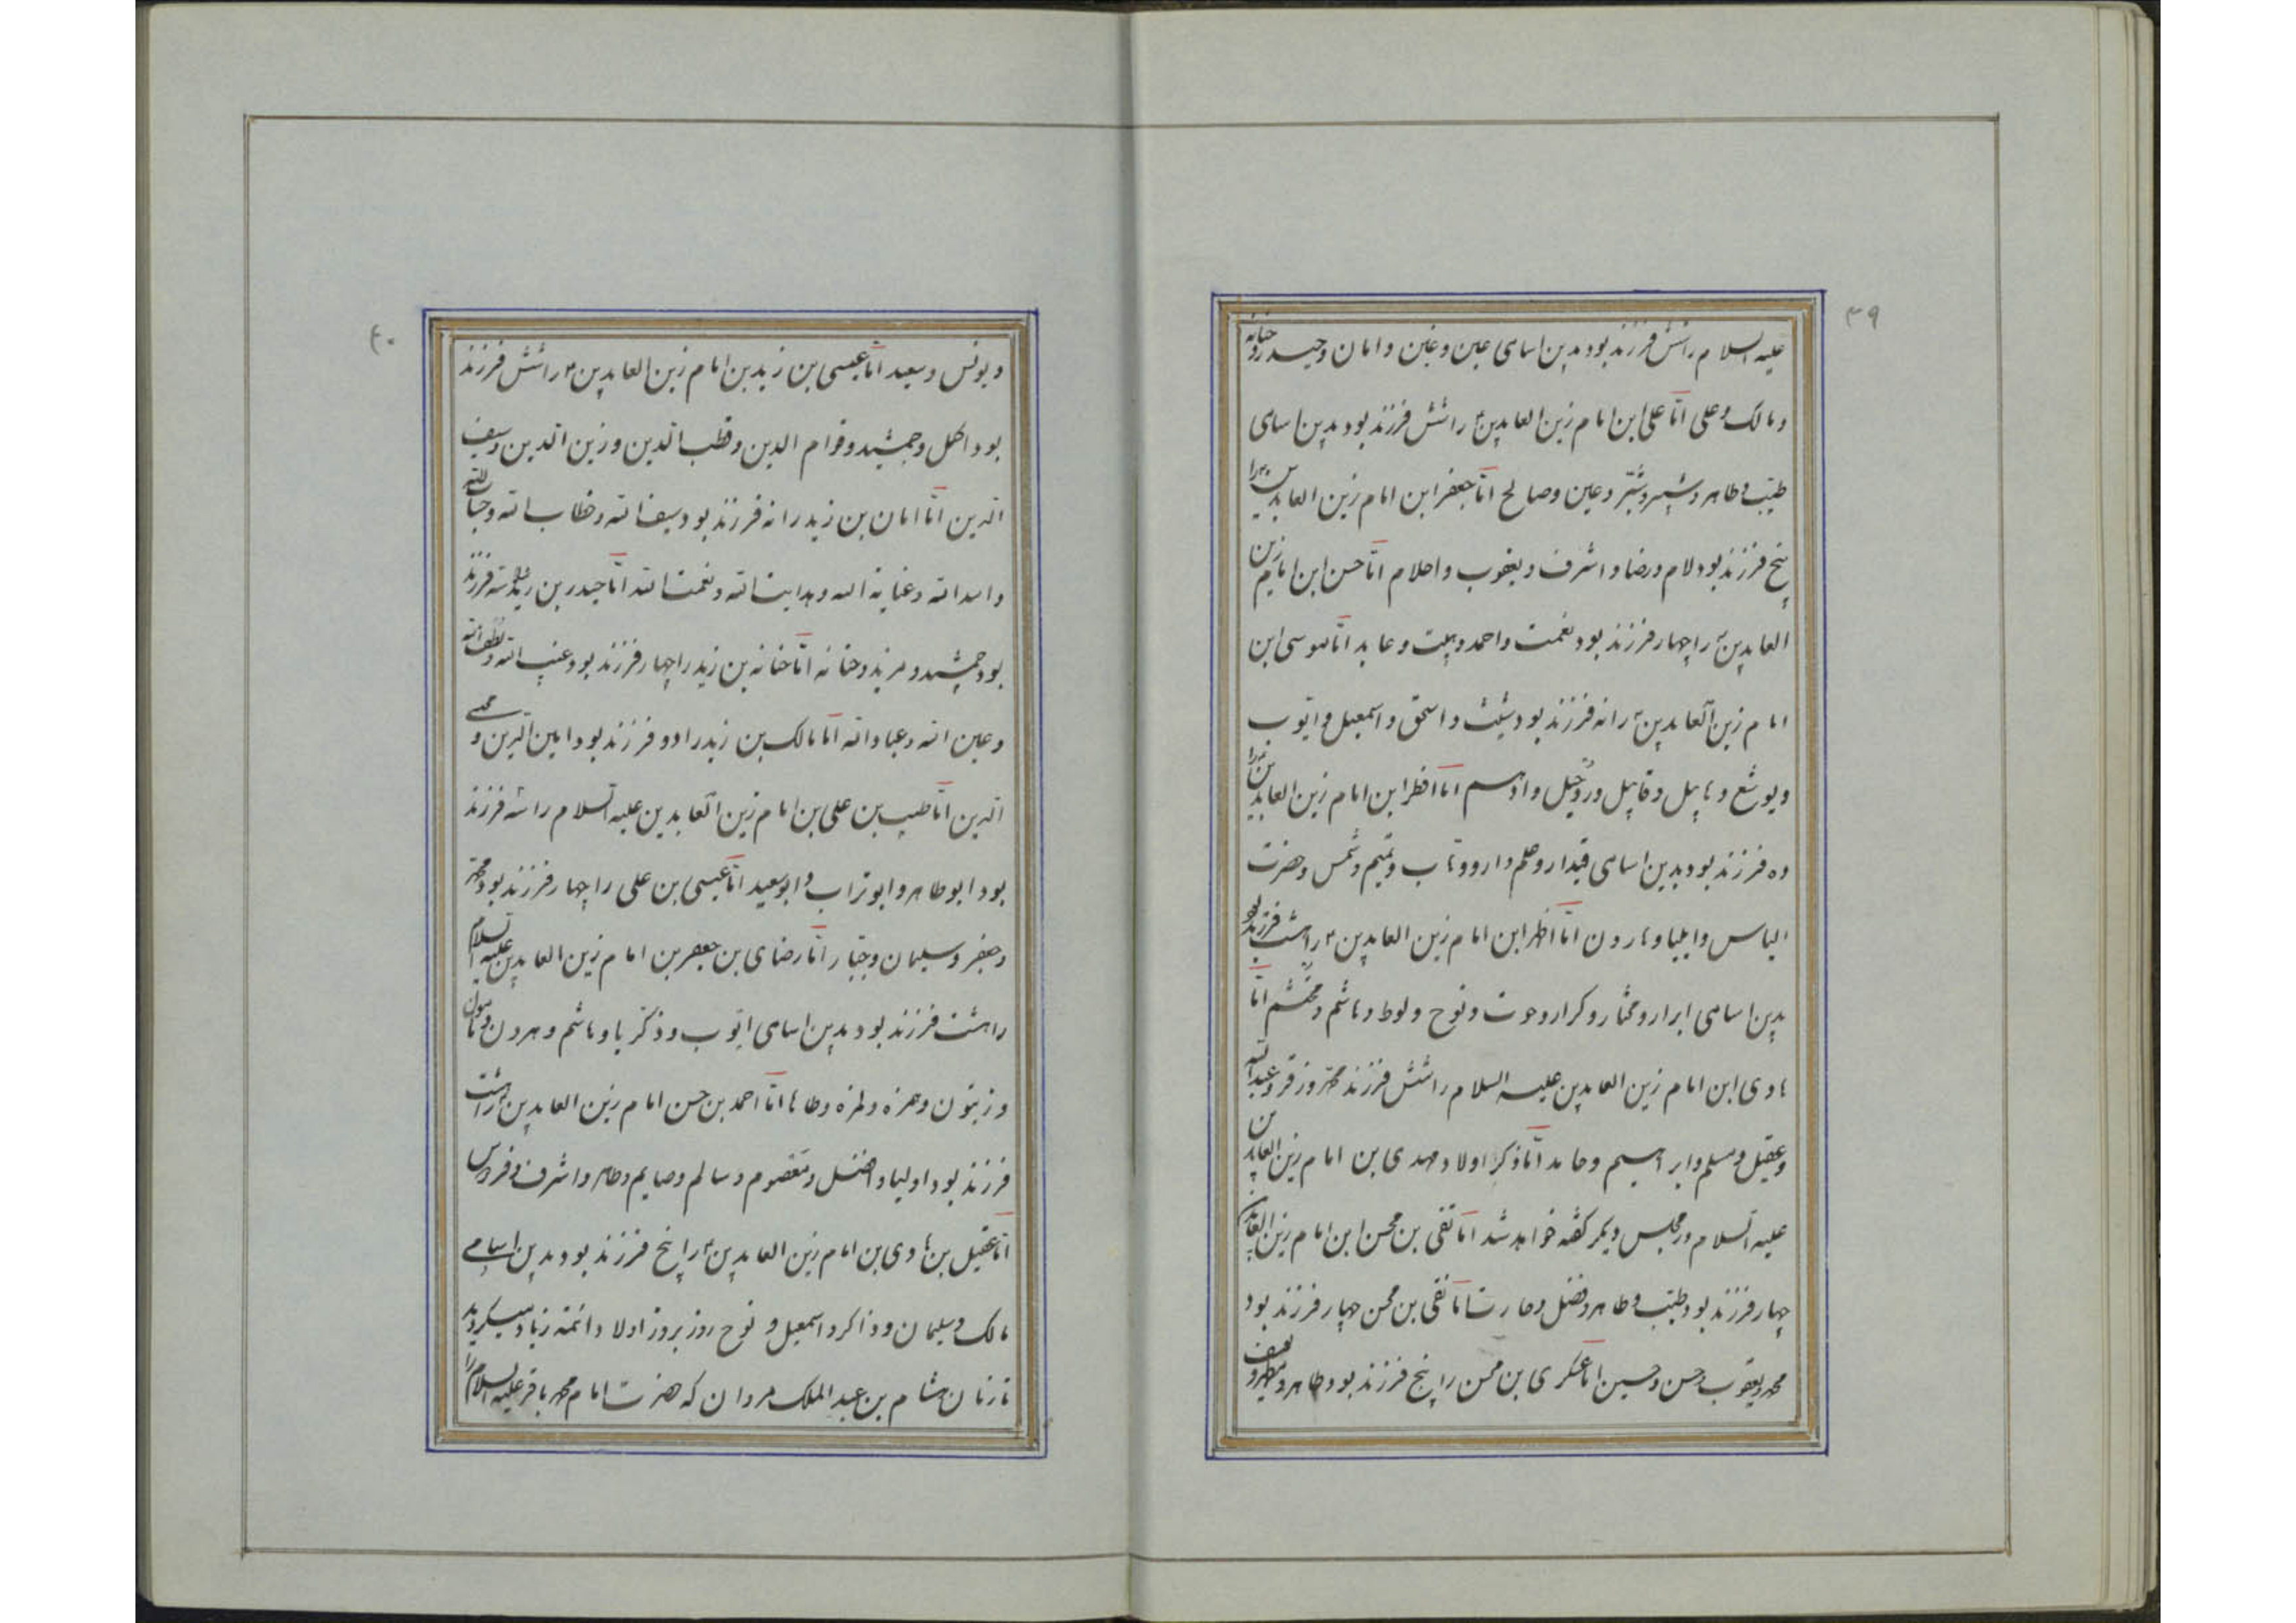 ۳۹
علیه السلام را شش فرزند بود بدین اسامی عین و غین و امان و حیدر و خنانه
و مالک و علی امّا علی ابن امام زین العابدین ع را شش فرزند بود بدین اسامی
طیّب و طاهر و شبیر و شبّر و عین و صالح امّا جعفر ابن امام زین العابدین ع را
پنج فرزند بود لام و رضا و اشرف و یعقوب و احلام امّا حسن ابن امام زین
العابدین ع را چهار فرزند بود نعمت و احمد و هیبت و عابد امّا موسی ابن
امام زین العابدین ع را نه فرزند بود شیث و اسحق و اسمعیل و ایّوب
و یوشع و هابیل و قابیل و روحیل و ادهم امّا افطر ابن امام زین العابدین ع را
ده فرزند بود بدین اسامی قیدار و حلم و ارو و تاب و تمیم و شمس و حضرت
الیاس و ایلیا و هارون امّا اظهر ابن امام زین العابدین ع را هشت فرزند بود
بدین اسامی ابرار و مختار و کرار و حوت و نوح و لوط و هاشم و محتشم امّا
هادی ابن امام زین العابدین علیه السلام را شش فرزند محمّد و زفر و عبد اللّه
و عقیل و مسلم و ابراهیم و حامد امّا ذکر اولاد مهدی بن امام زین العابدین
علیه السلام در مجلس دیگر گفته خواهد شد امّا تقی بن محسن ابن امام زین العابدین
چهار فرزند بود طیّب و طاهر و فضل و حارث امّا نقی بن محسن چهار فرزند بود
محمد و یعقوب و حسن و حسین امّا عسکری بن محسن را پنج فرزند بود طاهر و مطهر و یوسف
۴۰
و یونس و سعید امّا عیسی بن زید بن امام زین العابدین ع را شش فرزند
بود اکمل و جمشید و قوام الدین و قطب الدین و زین الدین و سیف
الدین امّا امان بن زید را نه فرزند بود سیف اللّه و خطاب اللّه و حباب اللّه
و اسد اللّه و عنایة اللّه و هدایت اللّه و نعمت اللّه امّا حیدر بن زید را سه فرزند
بود جمشید و مزید و خنانه امّا خنانه بن زید را چهار فرزند بود غیب اللّه و لطف اللّه
و عین اللّه و عباد اللّه امّا مالک بن زید را دو فرزند بود امین الدین و محیی
الدین امّا طیب بن علی بن امام زین العابدین علیه السلام را سه فرزند
بود ابو طاهر و ابو تراب و ابو سعید امّا عیسی بن علی را چهار فرزند بود محمّد
و جعفر و سلیمان و جبّار امّا رضای بن جعفر بن امام زین العابدین علیه السلام
را هشت فرزند بود بدین اسامی ایّوب و ذکریا و هاشم و هرون و مامون
و زیتون و حمزه و لمزه و طاها امّا احمد بن حسن امام زین العابدین ع را هشت
فرزند بود اولیا و افضل و معصوم و سالم و صایم و طاهر و اشرف و فردوس
امّا عقیل بن هادی بن امام زین العابدین ع را پنج فرزند بود بدین اسامی
مالک و سلیمان و ذاکر و اسمعیل و نوح روز بروز اولاد ائمّه زیاد میگردید
تا زمان هشام بن عبد الملک مروان که حضرت امام محمد باقر علیه السلام را